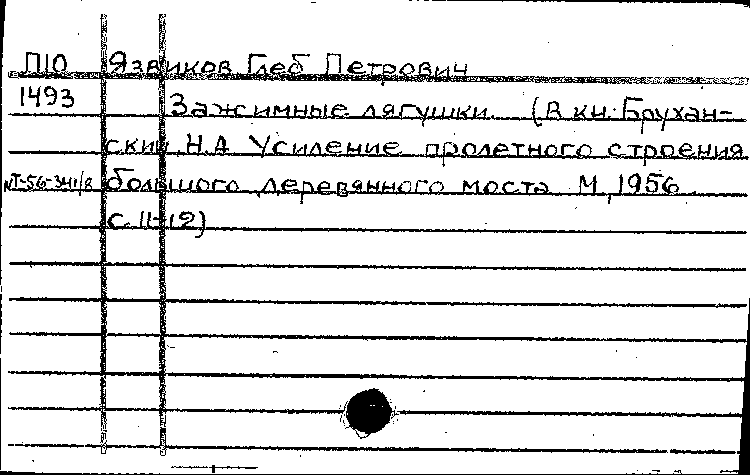 П10 Язвиков Глеб Петрович
1493 Зажимные лягушки. (В кн: Брухан-
ский Н.А Усиление пролетного строения
NT-56-341/8 большого деревянного моста М, 1956
с. 11-12)